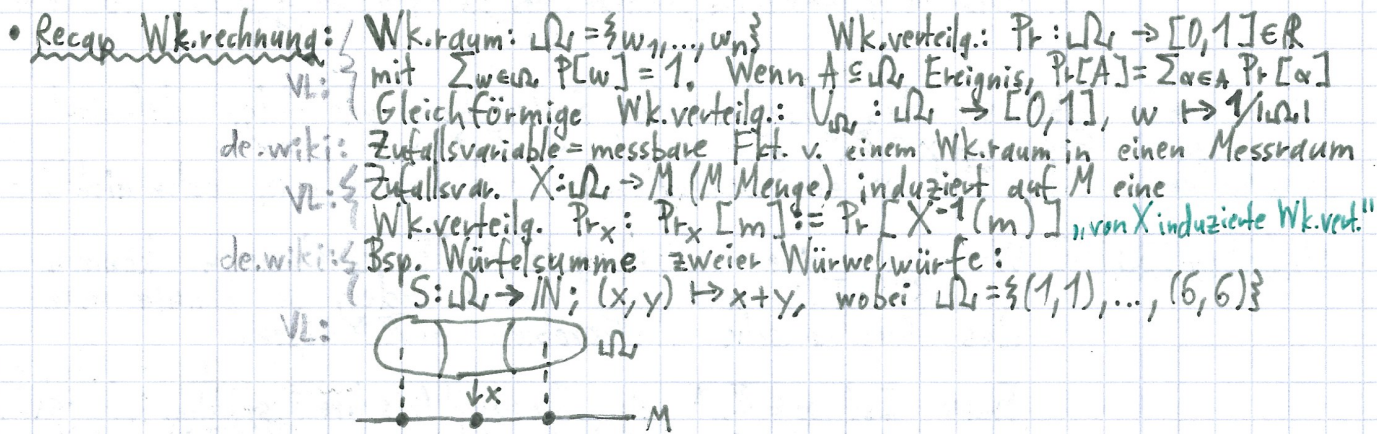 • Recap Wk.rechnung: Wk.raum: Ω = {w₁,..., wₙ} Wk.verteilg.: Pr : Ω → [0,1] ∈ ℝ
VL: mit Σ_{w∈Ω} P[w] = 1. Wenn A ⊆ Ω Ereignis, Pr[A] = Σ_{α∈A} Pr[α]
Gleichförmige Wk.verteilg.: U_Ω : Ω → [0,1], w ↦ 1/|Ω|
de.wiki: Zufallsvariable = messbare Fkt. v. einem Wk.raum in einen Messraum
VL: Zufallsvar. X: Ω → M (M Menge) induziert auf M eine
Wk.verteilg. Pr_X : Pr_X [m] := Pr [X⁻¹(m)] „von X induzierte Wk.vert."
de.wiki: Bsp. Würfelsumme zweier Würwelwürfe:
S: Ω → ℕ; (x,y) ↦ x+y, wobei Ω = {(1,1),..., (6,6)}
VL: Ω
↓x
M